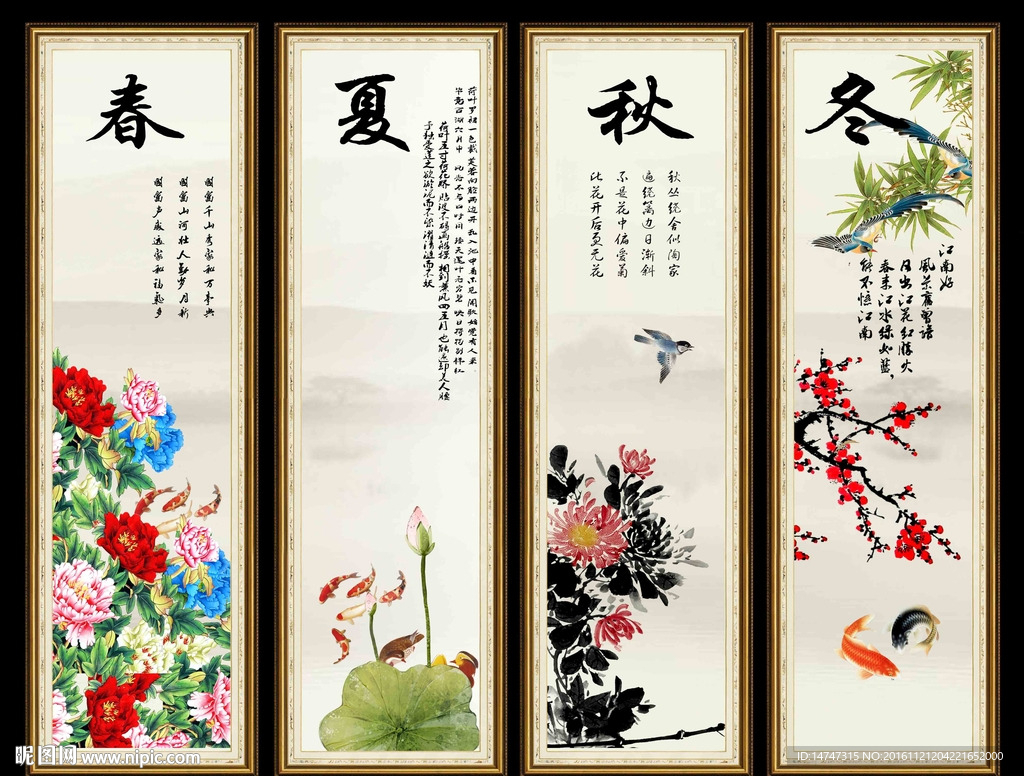 春
國富千山秀家和万事兴
國富山河壮人勤岁月新
國富声威远家和福多
夏
荷叶罗裙一色裁 芙蓉向脸两边开 乱入池中看不见 闻歌始觉有人来
毕竟西湖六月中 风光不与四时同 接天莲叶无穷碧 映日荷花别样红
荷叶五寸荷花娇 贴波不碍画船摇 相到薰风四五月 也能遮却美人腰
予独爱莲之淤泥而不染濯清涟而不妖
秋
秋丛绕舍似陶家
遍绕篱边日渐斜
不是花中偏爱菊
此花开后更无花
冬
江南好
風景舊曾諳
日出江花红勝火
春来江水绿如蓝，
能不憶江南
昵图网 www.nipic.com
ID:14747315 NO:20161121204221652000